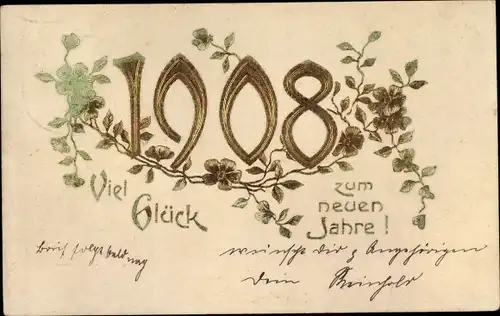 1908
Viel Glück
zum neuen Jahre!
Brief folgt baldmög
wünscht dir & Angehörigen
Dein Reinhold